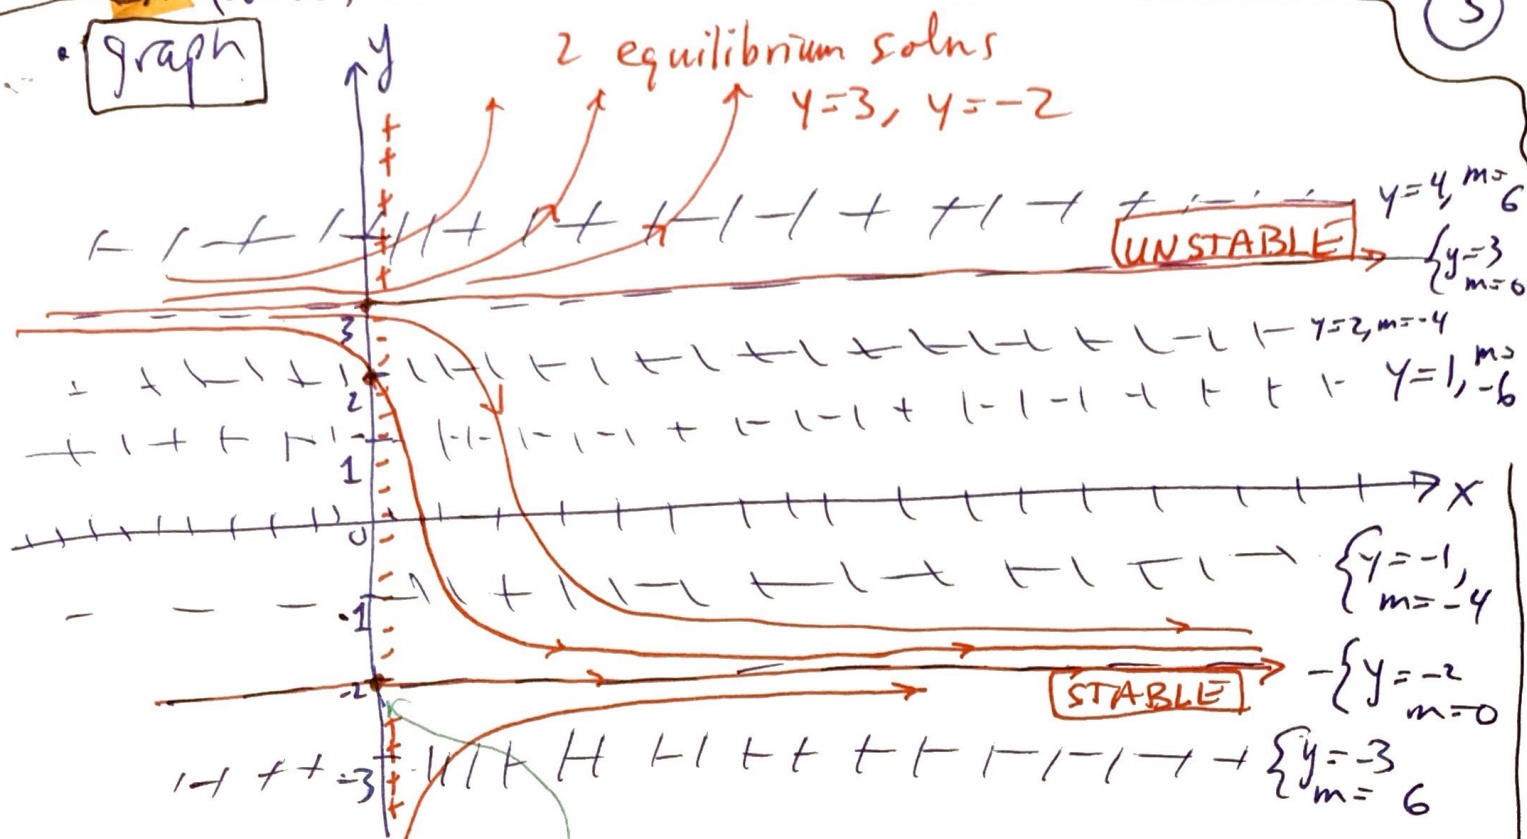 graph
y
2 equilibrium solns
y=3, y=-2
y=4, m=6
UNSTABLE
{y=3
m=0
3
y=2, m=-4
y=1, m=-6
2
1
x
0
{y=-1,
m=-4
-1
-2
STABLE
-{y=-2
m=0
-3
{y=-3
m= 6